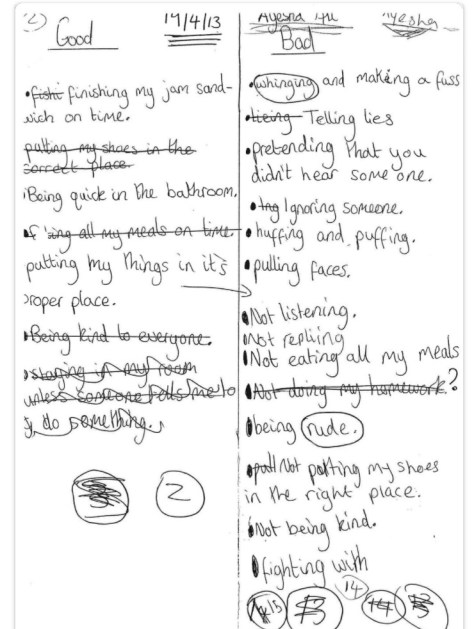 2)
Good
19/4/13
finishing my jam sand-
wich on time.
putting my shoes in the
correct place.
Being quick in the bathroom.
all my meals on time.
putting my things in it's
proper place.
Being kind to everyone.
staying in my room
unless someone tells me to
do something.
2
Ayesha Ali Ayesha
Bad
whinging and making a fuss
lieing Telling lies
pretending that you
didn't hear some one.
Ing Ignoring someone.
huffing and puffing.
pulling faces.
Not listening.
Not repliing
Not eating all my meals
Not doing my homework?
being rude.
Not putting my shoes
in the right place.
Not being kind.
fighting with
14